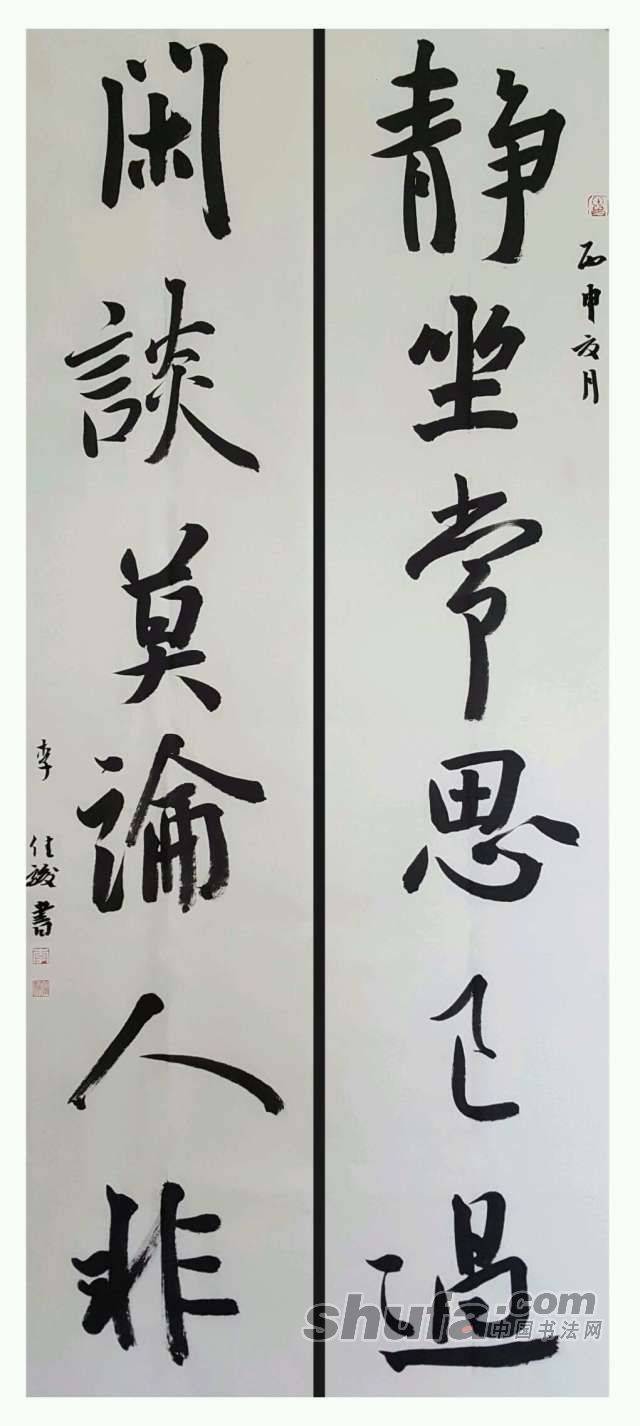 静坐常思己過
丙申夏月
閑談莫論人非
李佳駿書
shufa.com
中国书法网